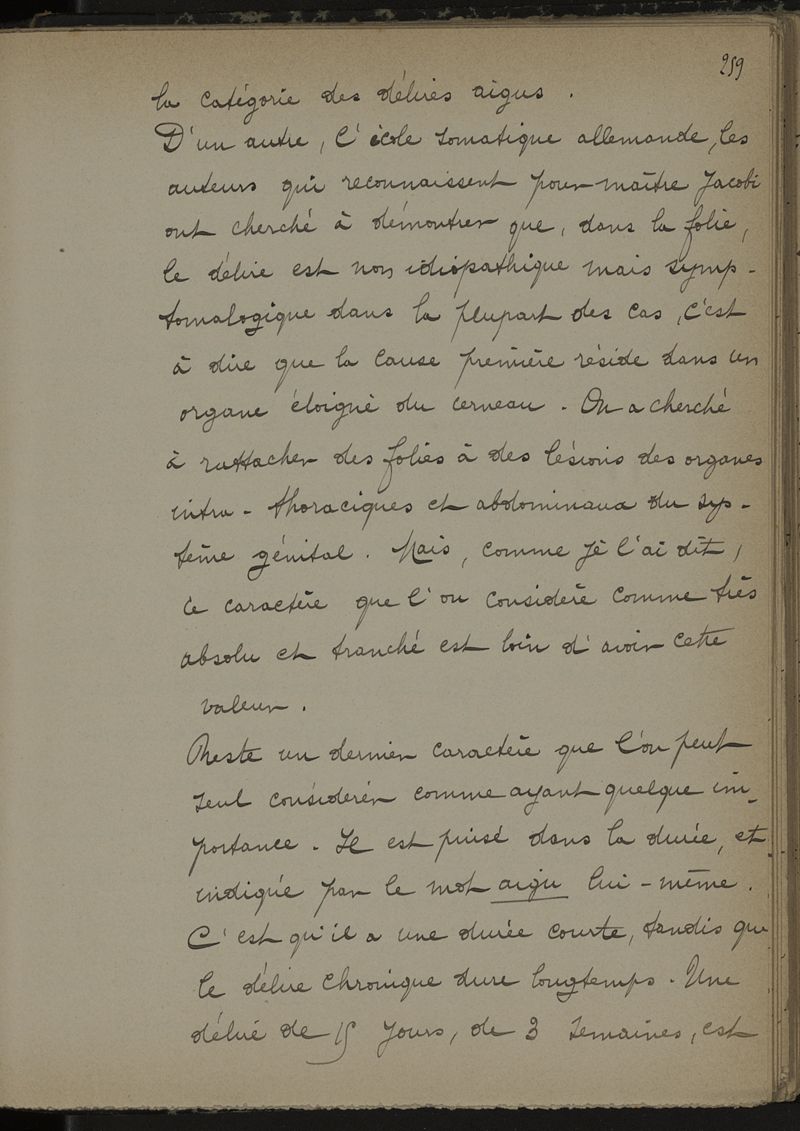 259
la catégorie des délires aigus .
D'un autre, l'école somatique allemande, les
auteurs qui reconnaissent pour maître Jacobi
ont cherché à démontrer que, dans la folie,
le délire est non idiopathique mais symp-
tomalogique dans la plupart des cas, c'est
à dire que la cause première réside dans un
organe éloigné du cerveau . On a cherché
à rattacher des folies à des lésions des organes
intra-thoraciques et abdominaux du sys-
tème génital . Mais, comme je l'ai dit,
ce caractère que l'on considère comme très
absolu et tranché est loin d'avoir cette
valeur .
Reste un dernier caractère que l'on peut
seul considérer comme ayant quelque im-
portance . Il est puisé dans la durée, et
indiquée par le mot aigu lui-même .
C'est qu'il a une durée courte, tandis que
le délire chronique dure longtemps . Une
délire de 15 jours, de 3 semaines, est